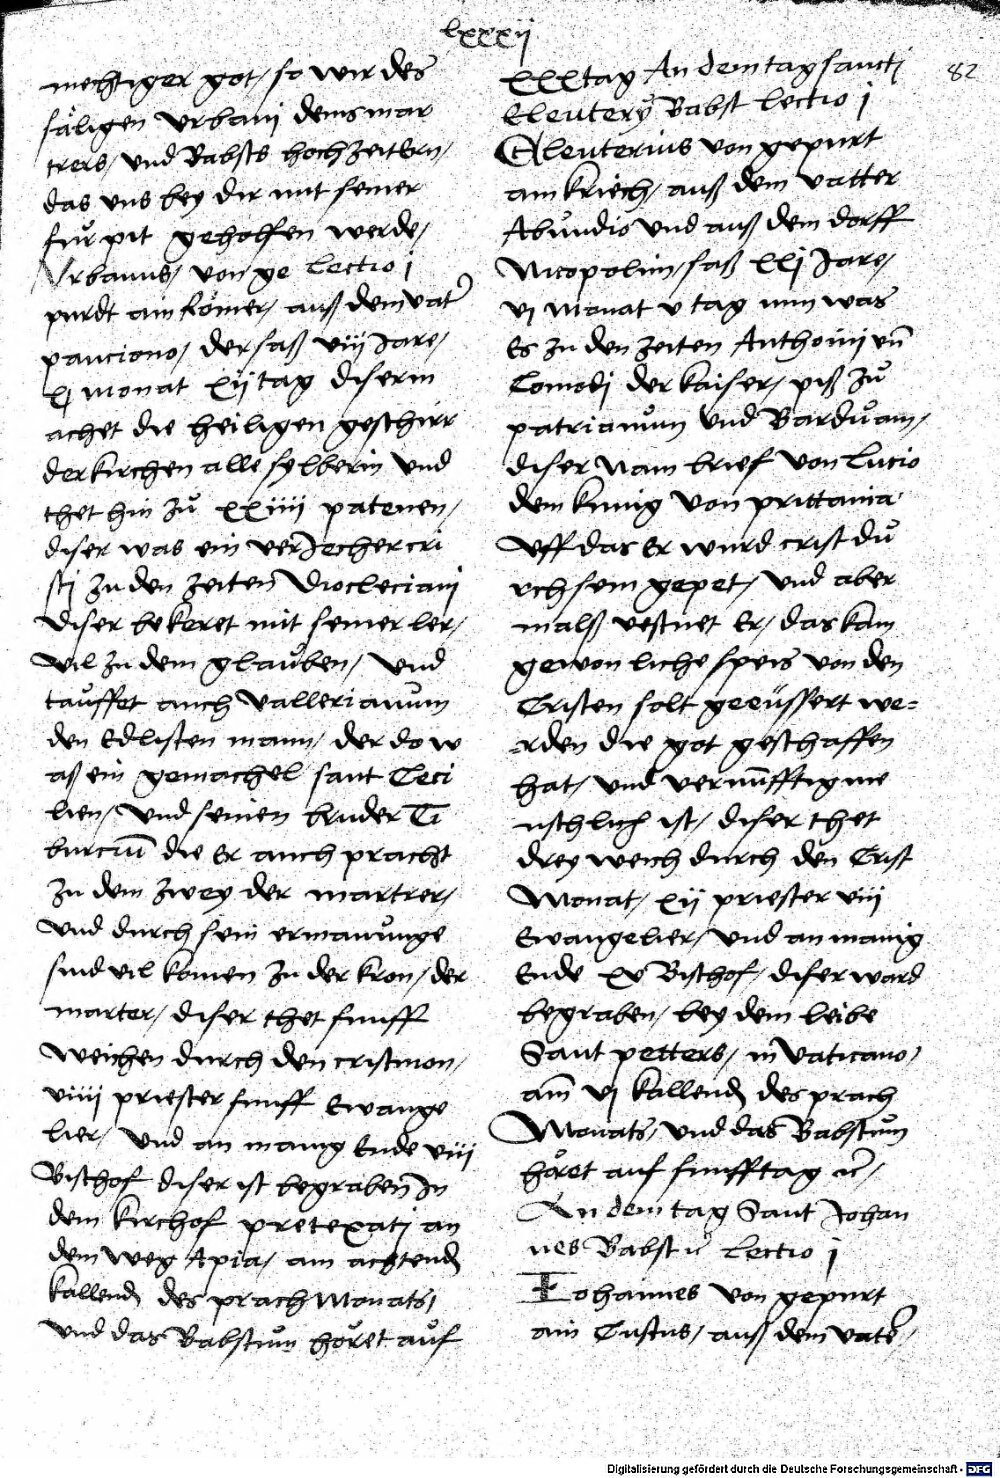 lxxxij
82
mechtiger got/ so wir des
säligen Vrbani deins mar
trers/ vnd Babsts hochzeit Ern/
das vns bey dir mit seiner
für pit geholffen werde/
Vrbanus/ von ge Lectio j
purdt ain Römer/ auß dem vatter
panciono/ der saß viiij Jare/
xj monat xij tag diser m
achet die heiligen geschirr
der kirchen alle sylberin vnd
thet hin zů xxiiij patenen/
diser was ein verJecher cri
sti zu den zeiten Diocleciani
diser bekeret mit seiner ler/
vil zu dem glauben/ vnd
tauffet auch Vallerianum
den Edlisten mann/ der do w
aß ein gemachel sant Ceci
lien/ vnd seinen bruder Ti
burciū die Er auch pracht
zu dem zwey der martrer/
vnd durch sein ermanunge
sind vil komen zu der kron/ der
marter/ diser thet funff
weichen durch den cristmon/
viiij priester funff Ewange
lier/ vnd an manig Ende viij
Bischof diser ist begraben In
dem kirchof pretexati an
dem weg Apia/ am achtend
kallend des prach Monats/
vnd das Babstum höret auf
xxxtag An dem tag sancti
Eleutery Babst Lectio j
Eleuterius von gepurt
ain kriech/ auß dem vatter
Abundio vnd auß dem dorff
Nicopolim/ saß xxj Jare/
vj monat v tag nun was
Es zu den zeiten Anthonij vn̄
Comodj der kaiser/ piß zů
patrianum vnd Barduam/
diser nam brief von Lucio
dem kunig von prittania
Vff das Er wurd crist du
rch sein gepet/ vnd aber
malß vestnet Er/ das kain
gewonliche speis von den
Cristen solt geeüssert we=
rden die got geschaffen
hat/ vnd vernüfftig me
nschlich ist/ diser thet
drey weich durch den Crist
Monat/ xij priester viij
Ewangelier/ vnd an manig
Ende xv Bischof/ diser ward
begraben/ bey dem leibe
Sant petters/ in Vaticano/
am̄ vj kallend des prach
Monats/ vnd das Babstum
höret auf funff tag
An dem tag Sant Johan
nes Babst Lectio j
Iohannes von gepurt
ain Tustus/ auß dem vatter/
Digitalisierung gefördert durch die Deutsche Forschungsgemeinschaft - DFG